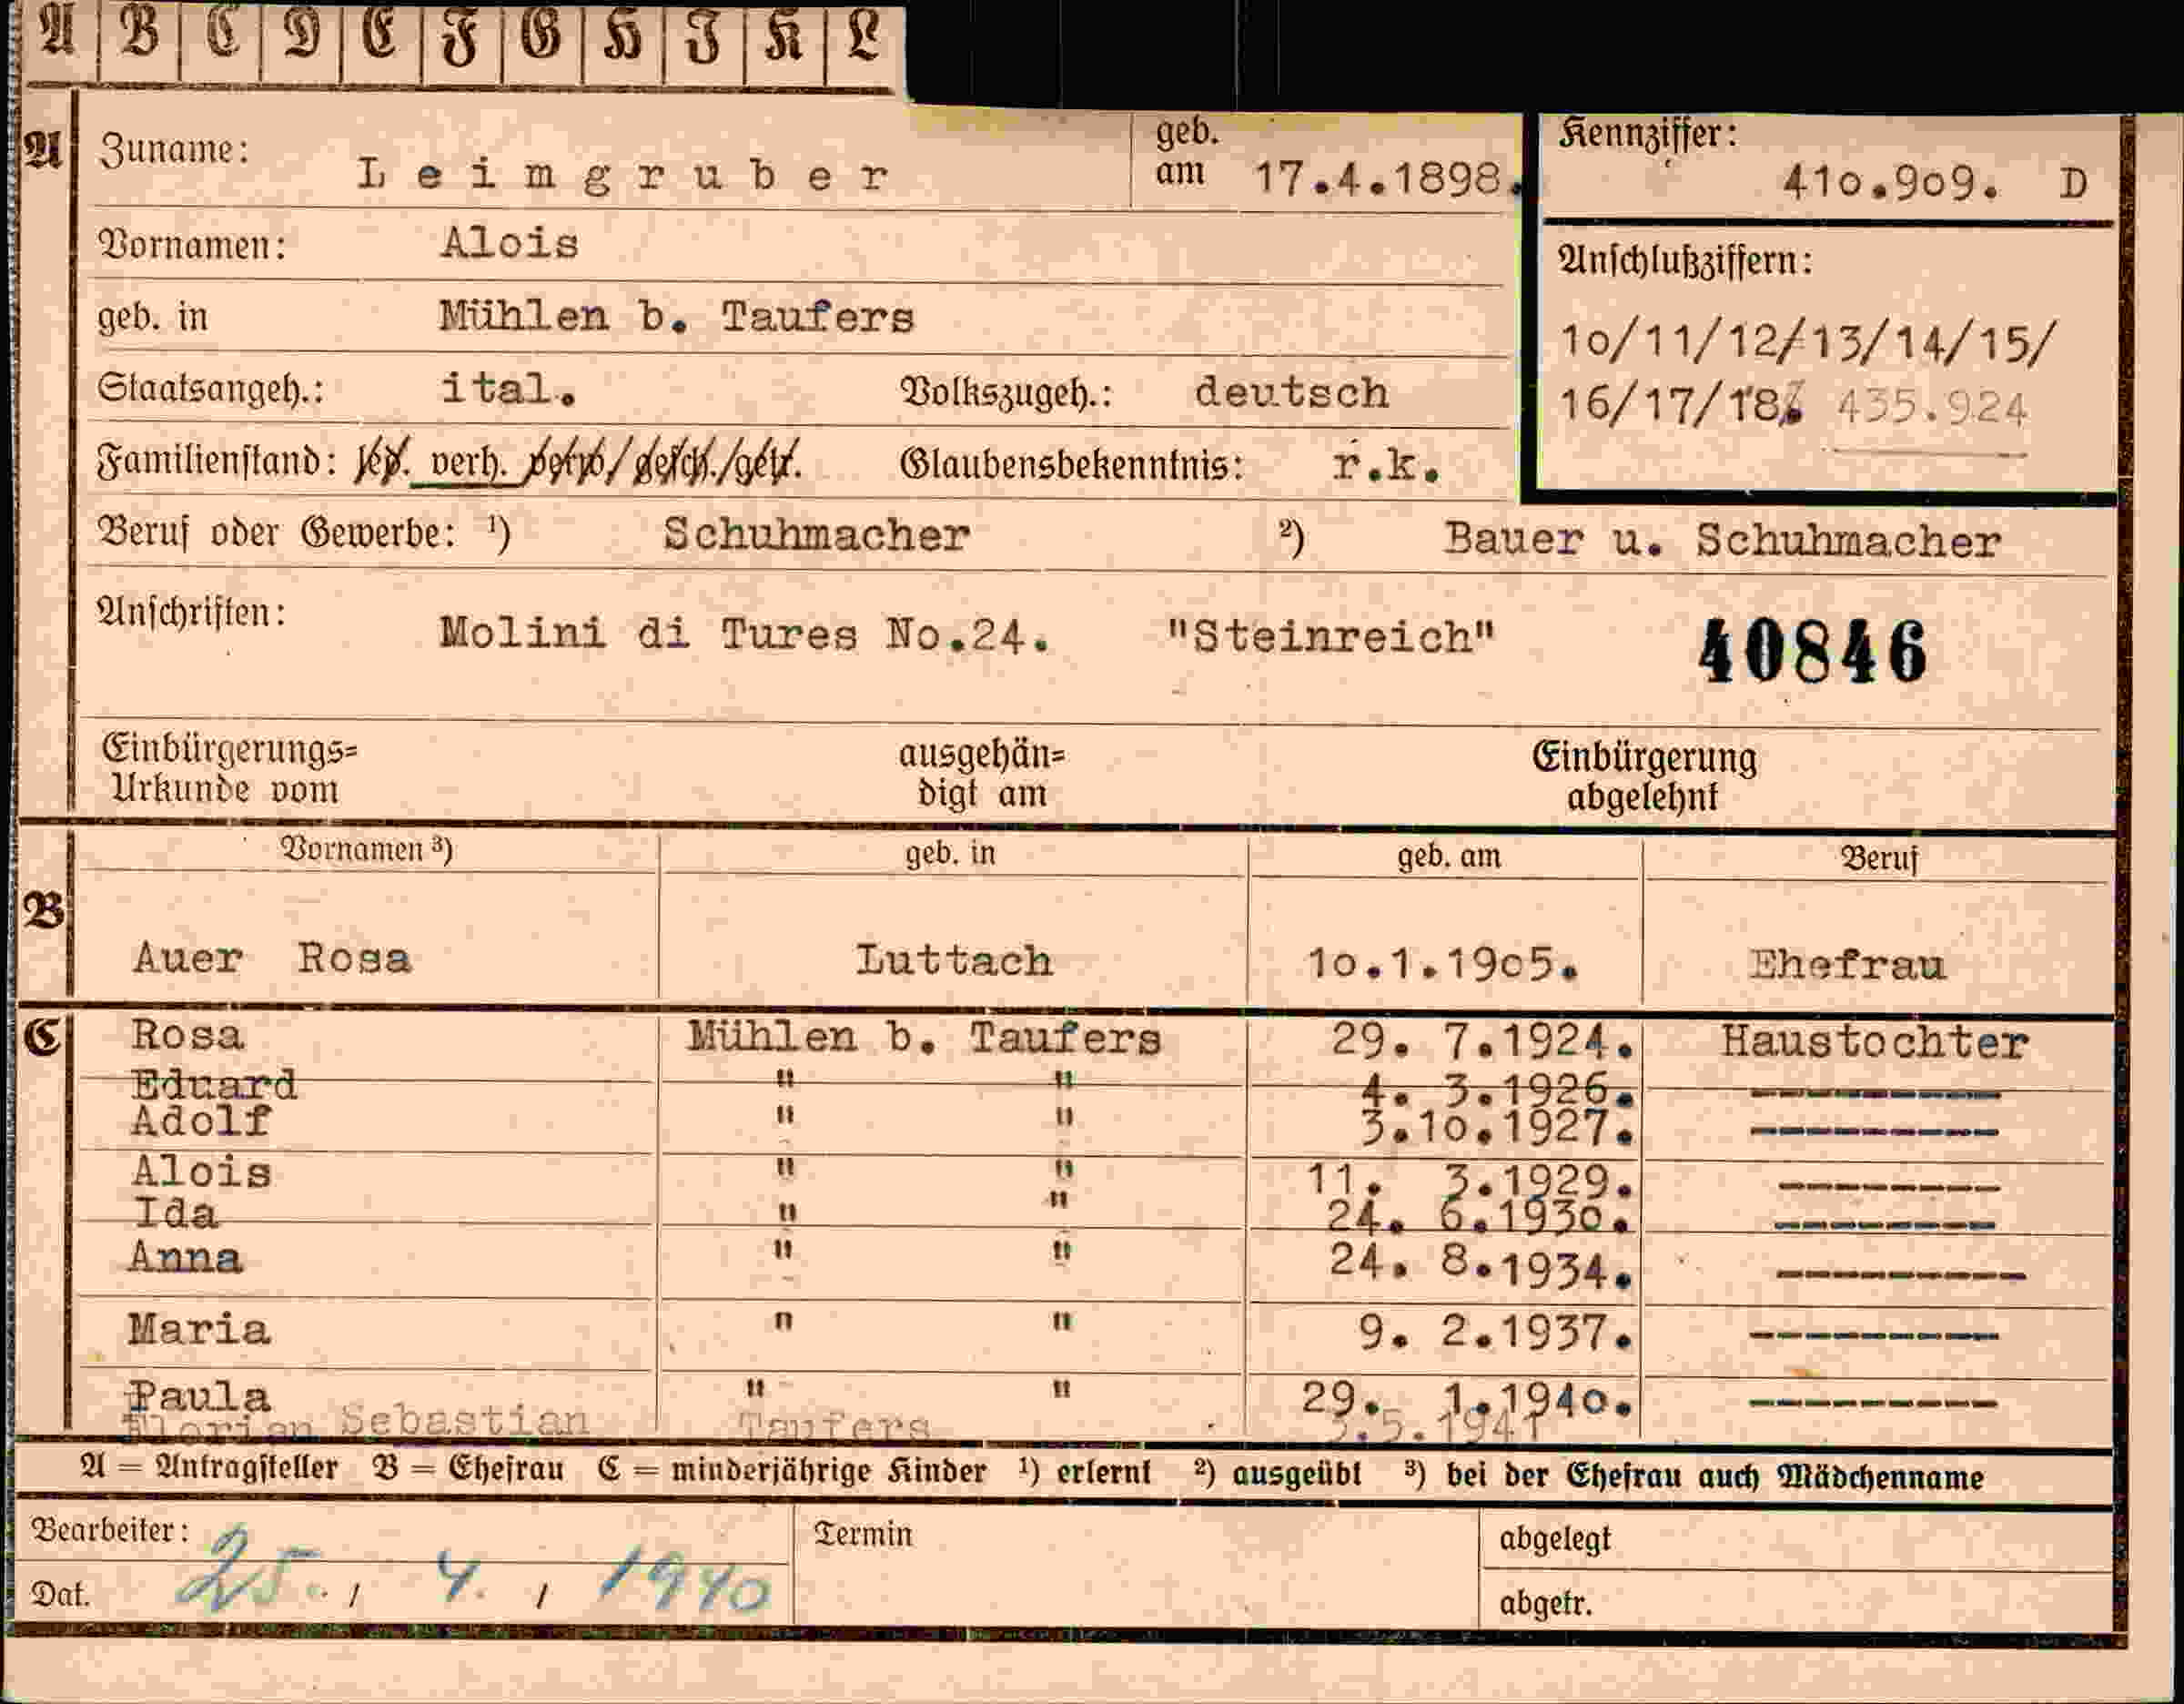 A B C D E F G H I K L
A Zuname: Leimgruber geb. am 17.4.1898.
Kennziffer: 410.909. D
Vornamen: Alois
Anschlußziffern:
geb. in Mühlen b. Taufers
10/11/12/13/14/15/
Staatsangeh.: ital. Volkszugeh.: deutsch
16/17/18 435.924
Familienstand: led. verh. verw./gesch./getr. Glaubensbekenntnis: r.k.
Beruf oder Gewerbe: 1) Schuhmacher 2) Bauer u. Schuhmacher
Anschriften: Molini di Tures No.24. "Steinreich" 40846
Einbürgerungs= ausgehän= Einbürgerung
Urkunde vom digt am abgelehnt
Vornamen 3) geb. in geb. am Beruf
B
Auer Rosa Luttach 10.1.1905. Ehefrau
C Rosa Mühlen b. Taufers 29. 7.1924. Haustochter
Eduard " " 4. 3.1926. ---------
Adolf " " 3.10.1927. ---------
Alois " " 11. 3.1929. --------
Ida " " 24. 6.1930. --------
Anna " " 24. 8.1934. ---------
Maria " " 9. 2.1937. ---------
Paula " " 29. 1.1940. ---------
Florian Sebastian Taufers 3.5.1941
A = Antragsteller B = Ehefrau C = minderjährige Kinder 1) erlernt 2) ausgeübt 3) bei der Ehefrau auch Mädchenname
Bearbeiter: Termin abgelegt
Dat. 25. / 4. / 1940 abgetr.